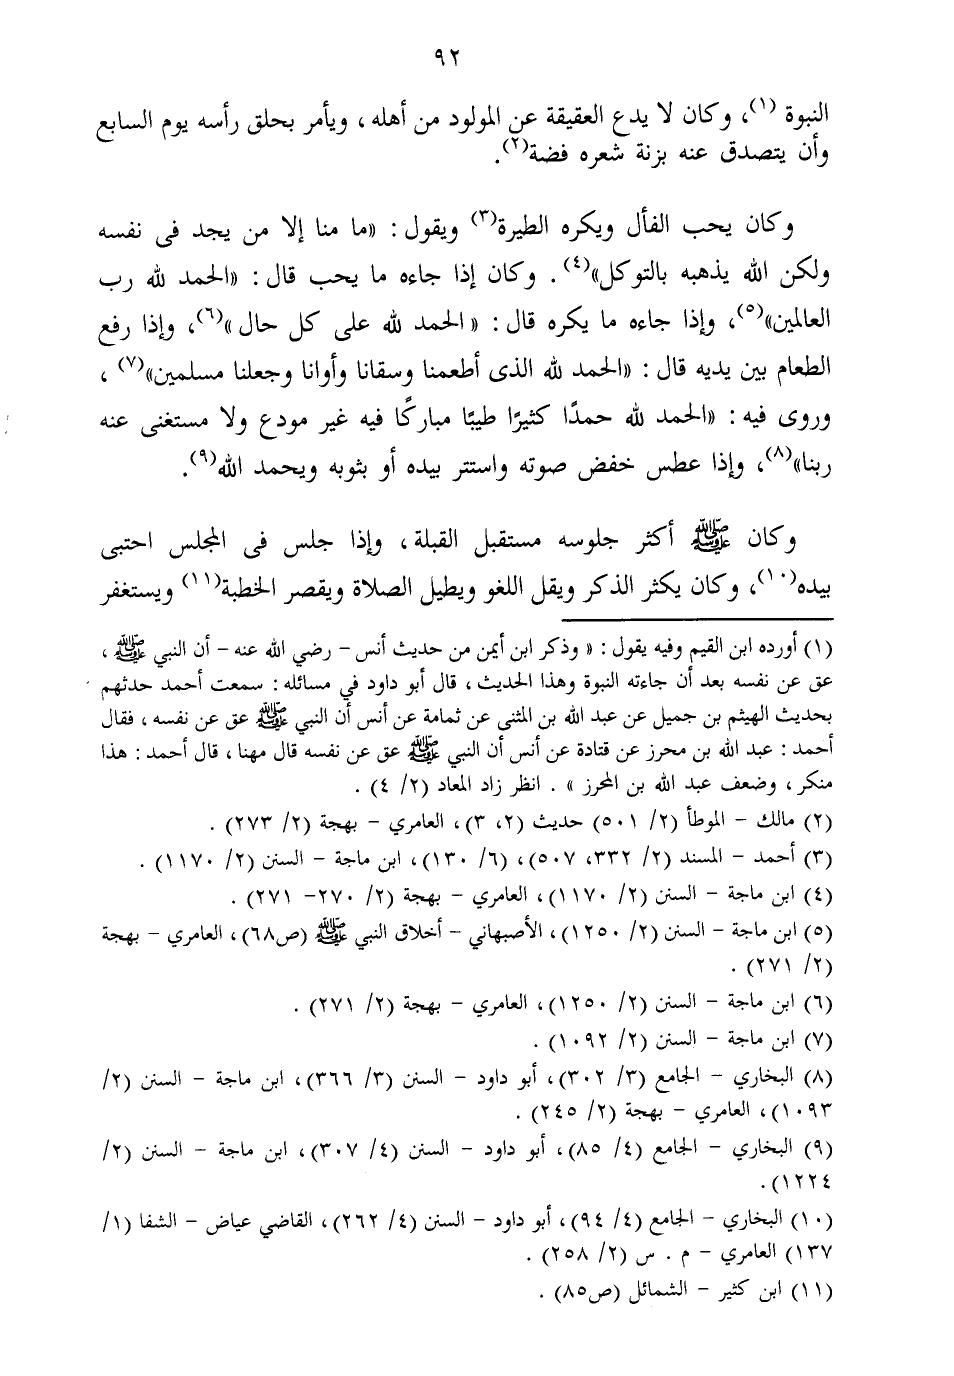 ٩٢
النبوة (١)، وكان لا يدع العقيقة عن المولود من أهله، ويأمر بحلق رأسه يوم السابع
وأن يتصدق عنه بزنة شعره فضة(٢).
وكان يحب الفأل ويكره الطيرة(٣) ويقول: «ما منا إلا من يجد فى نفسه
ولكن الله يذهبه بالتوكل»(٤). وكان إذا جاءه ما يحب قال: «الحمد لله رب
العالمين»(٥)، وإذا جاءه ما يكره قال: «الحمد لله على كل حال»(٦)، وإذا رفع
الطعام بين يديه قال: «الحمد لله الذى أطعمنا وسقانا وأوانا وجعلنا مسلمين»(٧)،
وروى فيه: «الحمد لله حمدًا كثيرًا طيبًا مباركًا فيه غير مودع ولا مستغنى عنه
ربنا»(٨)، وإذا عطس خفض صوته واستتر بيده أو بثوبه ويحمد الله(٩).
وكان ﷺ أكثر جلوسه مستقبل القبلة، وإذا جلس فى المجلس احتبى
بيده(١٠)، وكان يكثر الذكر ويقل اللغو ويطيل الصلاة ويقصر الخطبة(١١) ويستغفر
(١) أورده ابن القيم وفيه يقول: « وذكر ابن أيمن من حديث أنس – رضي الله عنه – أن النبي ﷺ،
عق عن نفسه بعد أن جاءته النبوة وهذا الحديث، قال أبو داود في مسائله: سمعت أحمد حدثهم
بحديث الهيثم بن جميل عن عبد الله بن المثنى عن ثمامة عن أنس أن النبي ﷺ عق عن نفسه، فقال
أحمد: عبد الله بن محرز عن قتادة عن أنس أن النبي ﷺ عق عن نفسه قال مهنا، قال أحمد: هذا
منكر، وضعف عبد الله بن المحرز ». انظر زاد المعاد (٢/ ٤).
(٢) مالك – الموطأ (٢/ ٥٠١) حديث (٢، ٣)، العامري – بهجة (٢/ ٢٧٣).
(٣) أحمد – المسند (٢/ ٣٣٢، ٥٠٧)، (٦/ ١٣٠)، ابن ماجة – السنن (٢/ ١١٧٠).
(٤) ابن ماجة – السنن (٢/ ١١٧٠)، العامري – بهجة (٢/ ٢٧٠– ٢٧١).
(٥) ابن ماجة – السنن (٢/ ١٢٥٠)، الأصبهاني – أخلاق النبي ﷺ (ص٦٨)، العامري – بهجة
(٢/ ٢٧١).
(٦) ابن ماجة – السنن (٢/ ١٢٥٠)، العامري – بهجة (٢/ ٢٧١).
(٧) ابن ماجة – السنن (٢/ ١٠٩٢).
(٨) البخاري – الجامع (٣/ ٣٠٢)، أبو داود – السنن (٣/ ٣٦٦)، ابن ماجة – السنن (٢/
١٠٩٣)، العامري – بهجة (٢/ ٢٤٥).
(٩) البخاري – الجامع (٤/ ٨٥)، أبو داود – السنن (٤/ ٣٠٧)، ابن ماجة – السنن (٢/
١٢٢٤).
(١٠) البخاري – الجامع (٤/ ٩٤)، أبو داود – السنن (٤/ ٢٦٢)، القاضي عياض – الشفا (١/
١٣٧) العامري – م . س (٢/ ٢٥٨).
(١١) ابن كثير – الشمائل (ص٨٥).